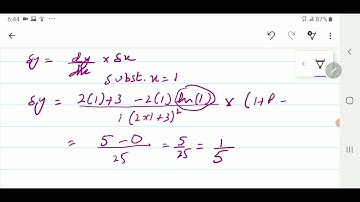 6:44
87%
δy = dy/dx × δx
subst. x = 1
δy = 2(1)+3 - 2(1) ln(1) / 1(2×1+3)² × (1+P -
= 5-0/25 = 5/25 = 1/5